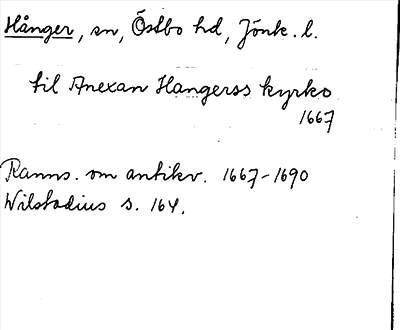 Hånger, sn, Östbo hd, Jönk. l.
til Anexan Hangerss kyrko
1667
Ranns. om antikv. 1667-1690
Wilstadius s. 164.